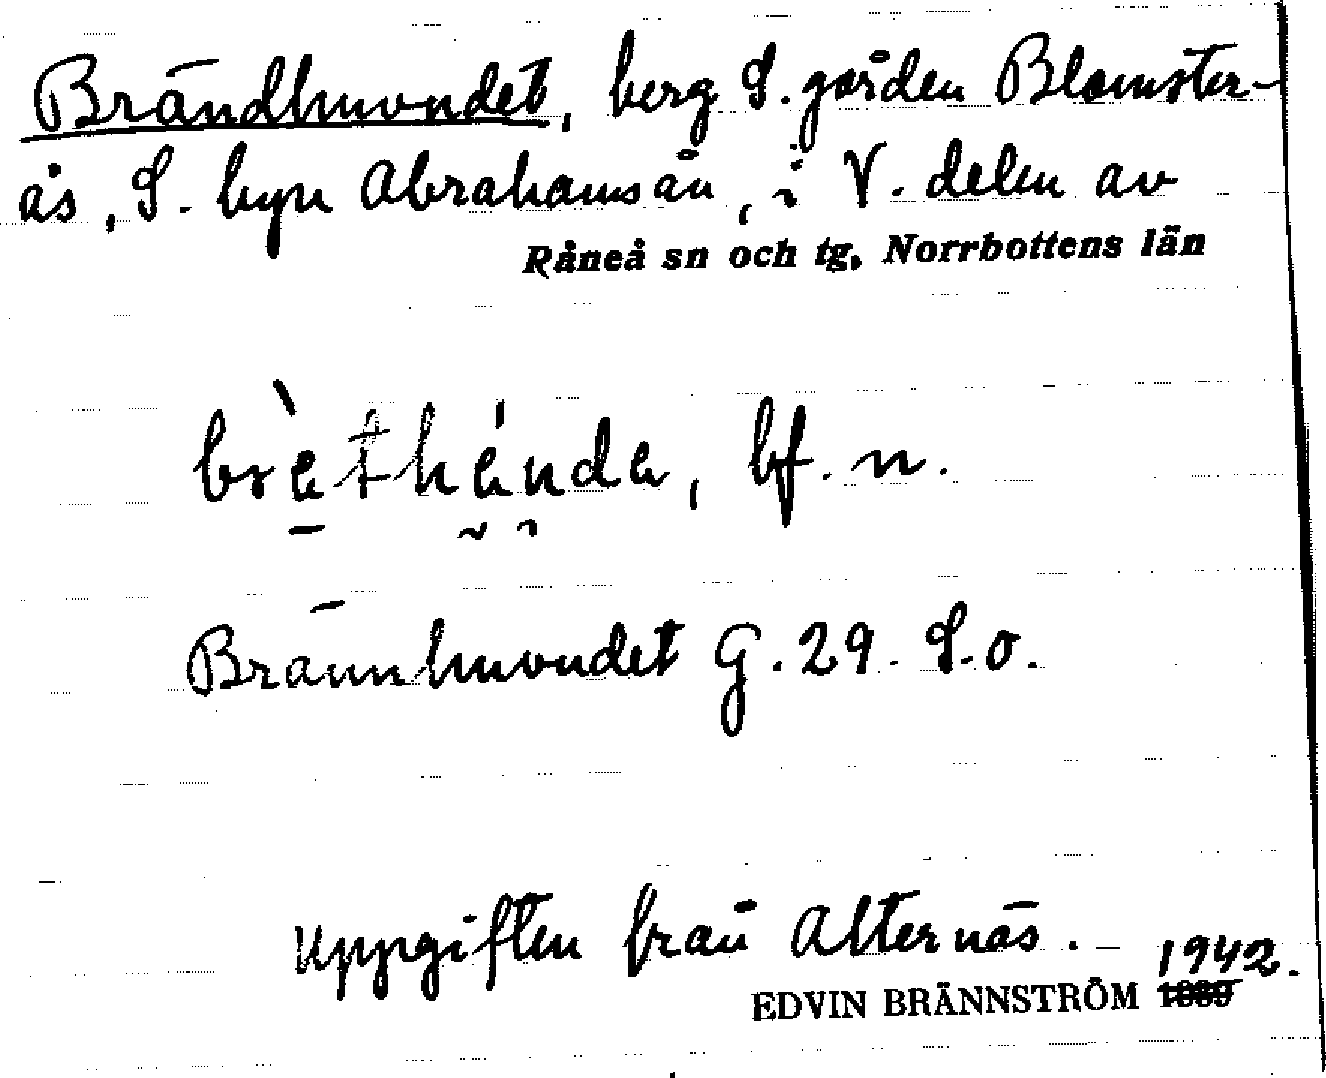 Brändhuvudet, berg S. gården Blomster-
ås, S. byn Abrahamsån, i V. delen av
Råneå sn och tg, Norrbottens län
bf. n.
Brännhuvudet G. 29. S.o.
Uppgiften från Alternäs. –
1942.
EDVIN BRÄNNSTRÖM 1939